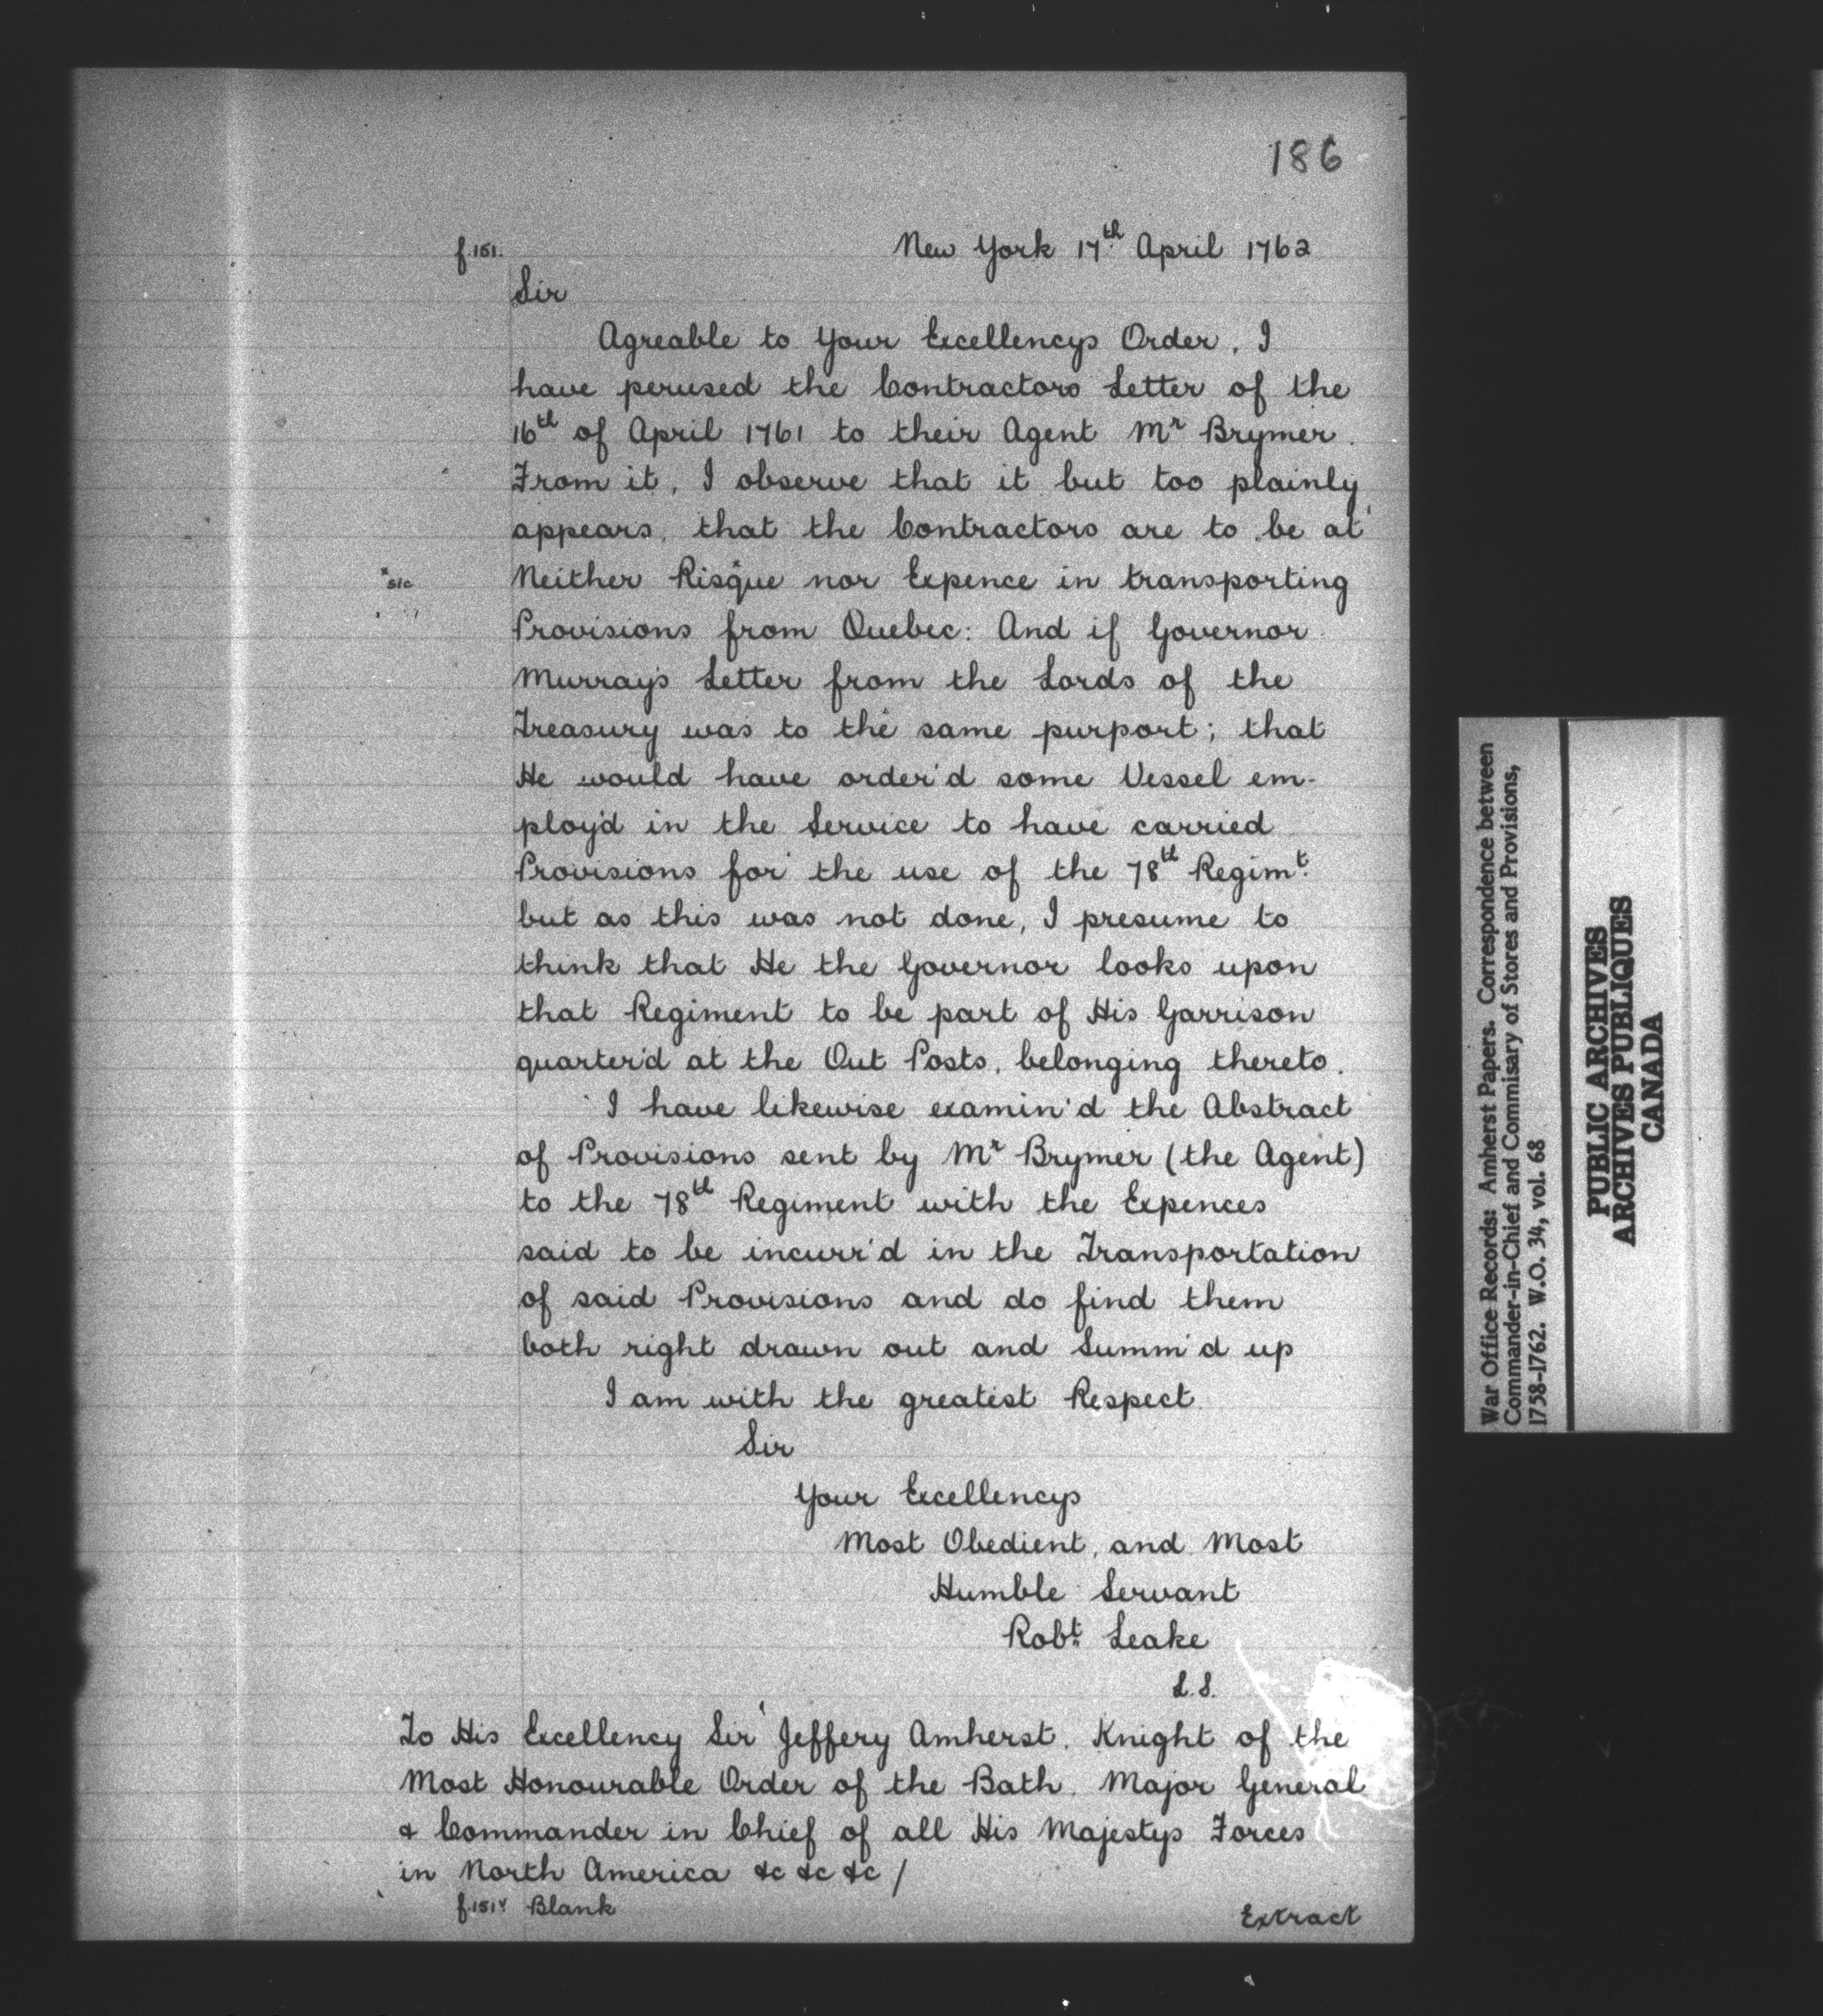 186
f.151. New York 17th April 1762
Sir
Agreable to Your Excellencys Order, I
have perused the Contractors Letter of the
16th of April 1761 to their Agent Mr Brymer.
From it, I observe that it but too plainly
appears, that the Contractors are to be at
*sic Neither Risque nor Expence in transporting
Provisions from Quebec: And if Governor
Murrays Letter from the Lords of the
Treasury was to the same purport; that
He would have order'd some Vessel em-
ploy'd in the Service to have carried
Provisions for the use of the 78th Regimt.
but as this was not done, I presume to
think that He the Governor looks upon
that Regiment to be part of His Garrison
quarter'd at the Out Posts, belonging thereto.
I have likewise examin'd the Abstract
of Provisions sent by Mr Brymer (the Agent)
to the 78th Regiment with the Expences
said to be incurr'd in the Transportation
of said Provisions and do find them
both right drawn out and Summ'd up
I am with the greatest Respect
Sir
Your Excellencys
Most Obedient, and Most
Humble Servant
Robt. Leake
L.S.
To His Excellency Sir Jeffery Amherst, Knight of the
Most Honourable Order of the Bath, Major General
& Commander in Chief of all His Majestys Forces
in North America &c &c &c /
f.151v Blank
Extract
War Office Records: Amherst Papers. Correspondence between
Commander-in-Chief and Commisary of Stores and Provisions,
1758-1762. W.O. 34, vol. 68
PUBLIC ARCHIVES
ARCHIVES PUBLIQUES
CANADA